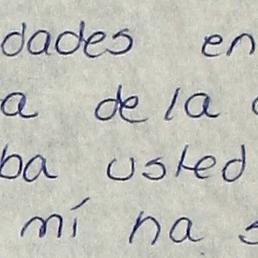 dades en
a de la
ba usted
mí na s